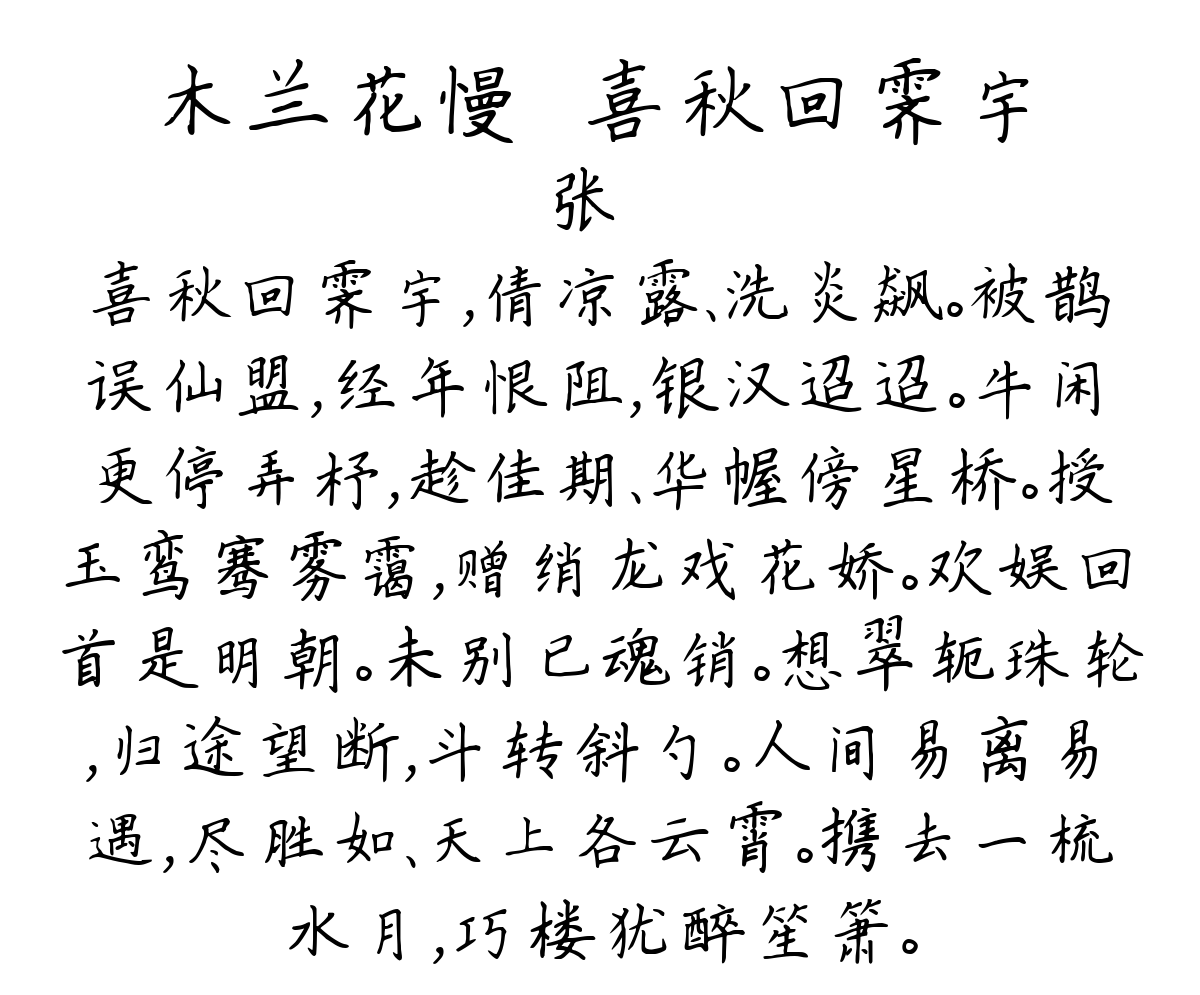 木兰花慢 喜秋回霁宇
张
喜秋回霁宇,倩凉露、洗炎飙。被鹊
误仙盟,经年恨阻,银汉迢迢。牛闲
更停弄杼,趁佳期、华幄傍星桥。授
玉鸾骞雾霭,赠绡龙戏花娇。欢娱回
首是明朝。未别已魂销。想翠轭珠轮
,归途望断,斗转斜勺。人间易离易
遇,尽胜如、天上各云霄。携去一梳
水月,巧楼犹醉笙箫。